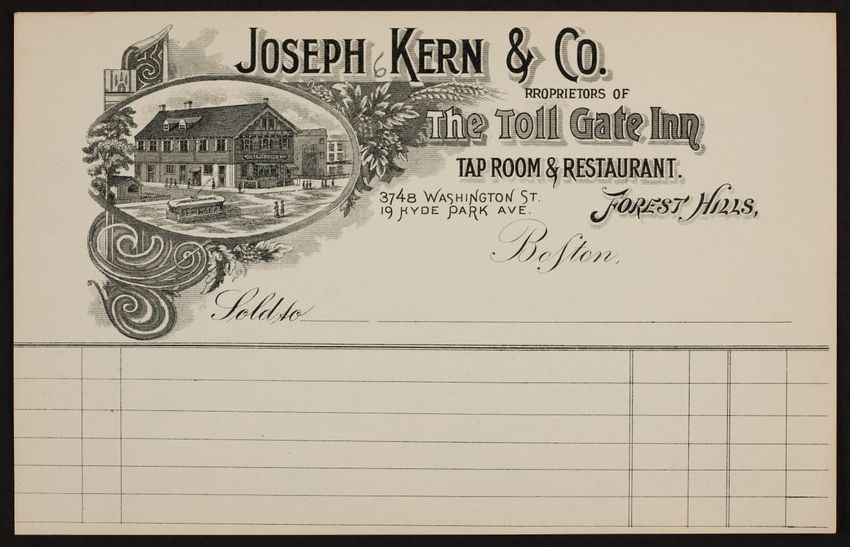 JOSEPH KERN & CO.
6
RROPRIETORS OF
The Toll Gate Inn
TAP ROOM & RESTAURANT.
3748 WASHINGTON ST.
19 HYDE PARK AVE.
FOREST HILLS,
Boston,
Sold to